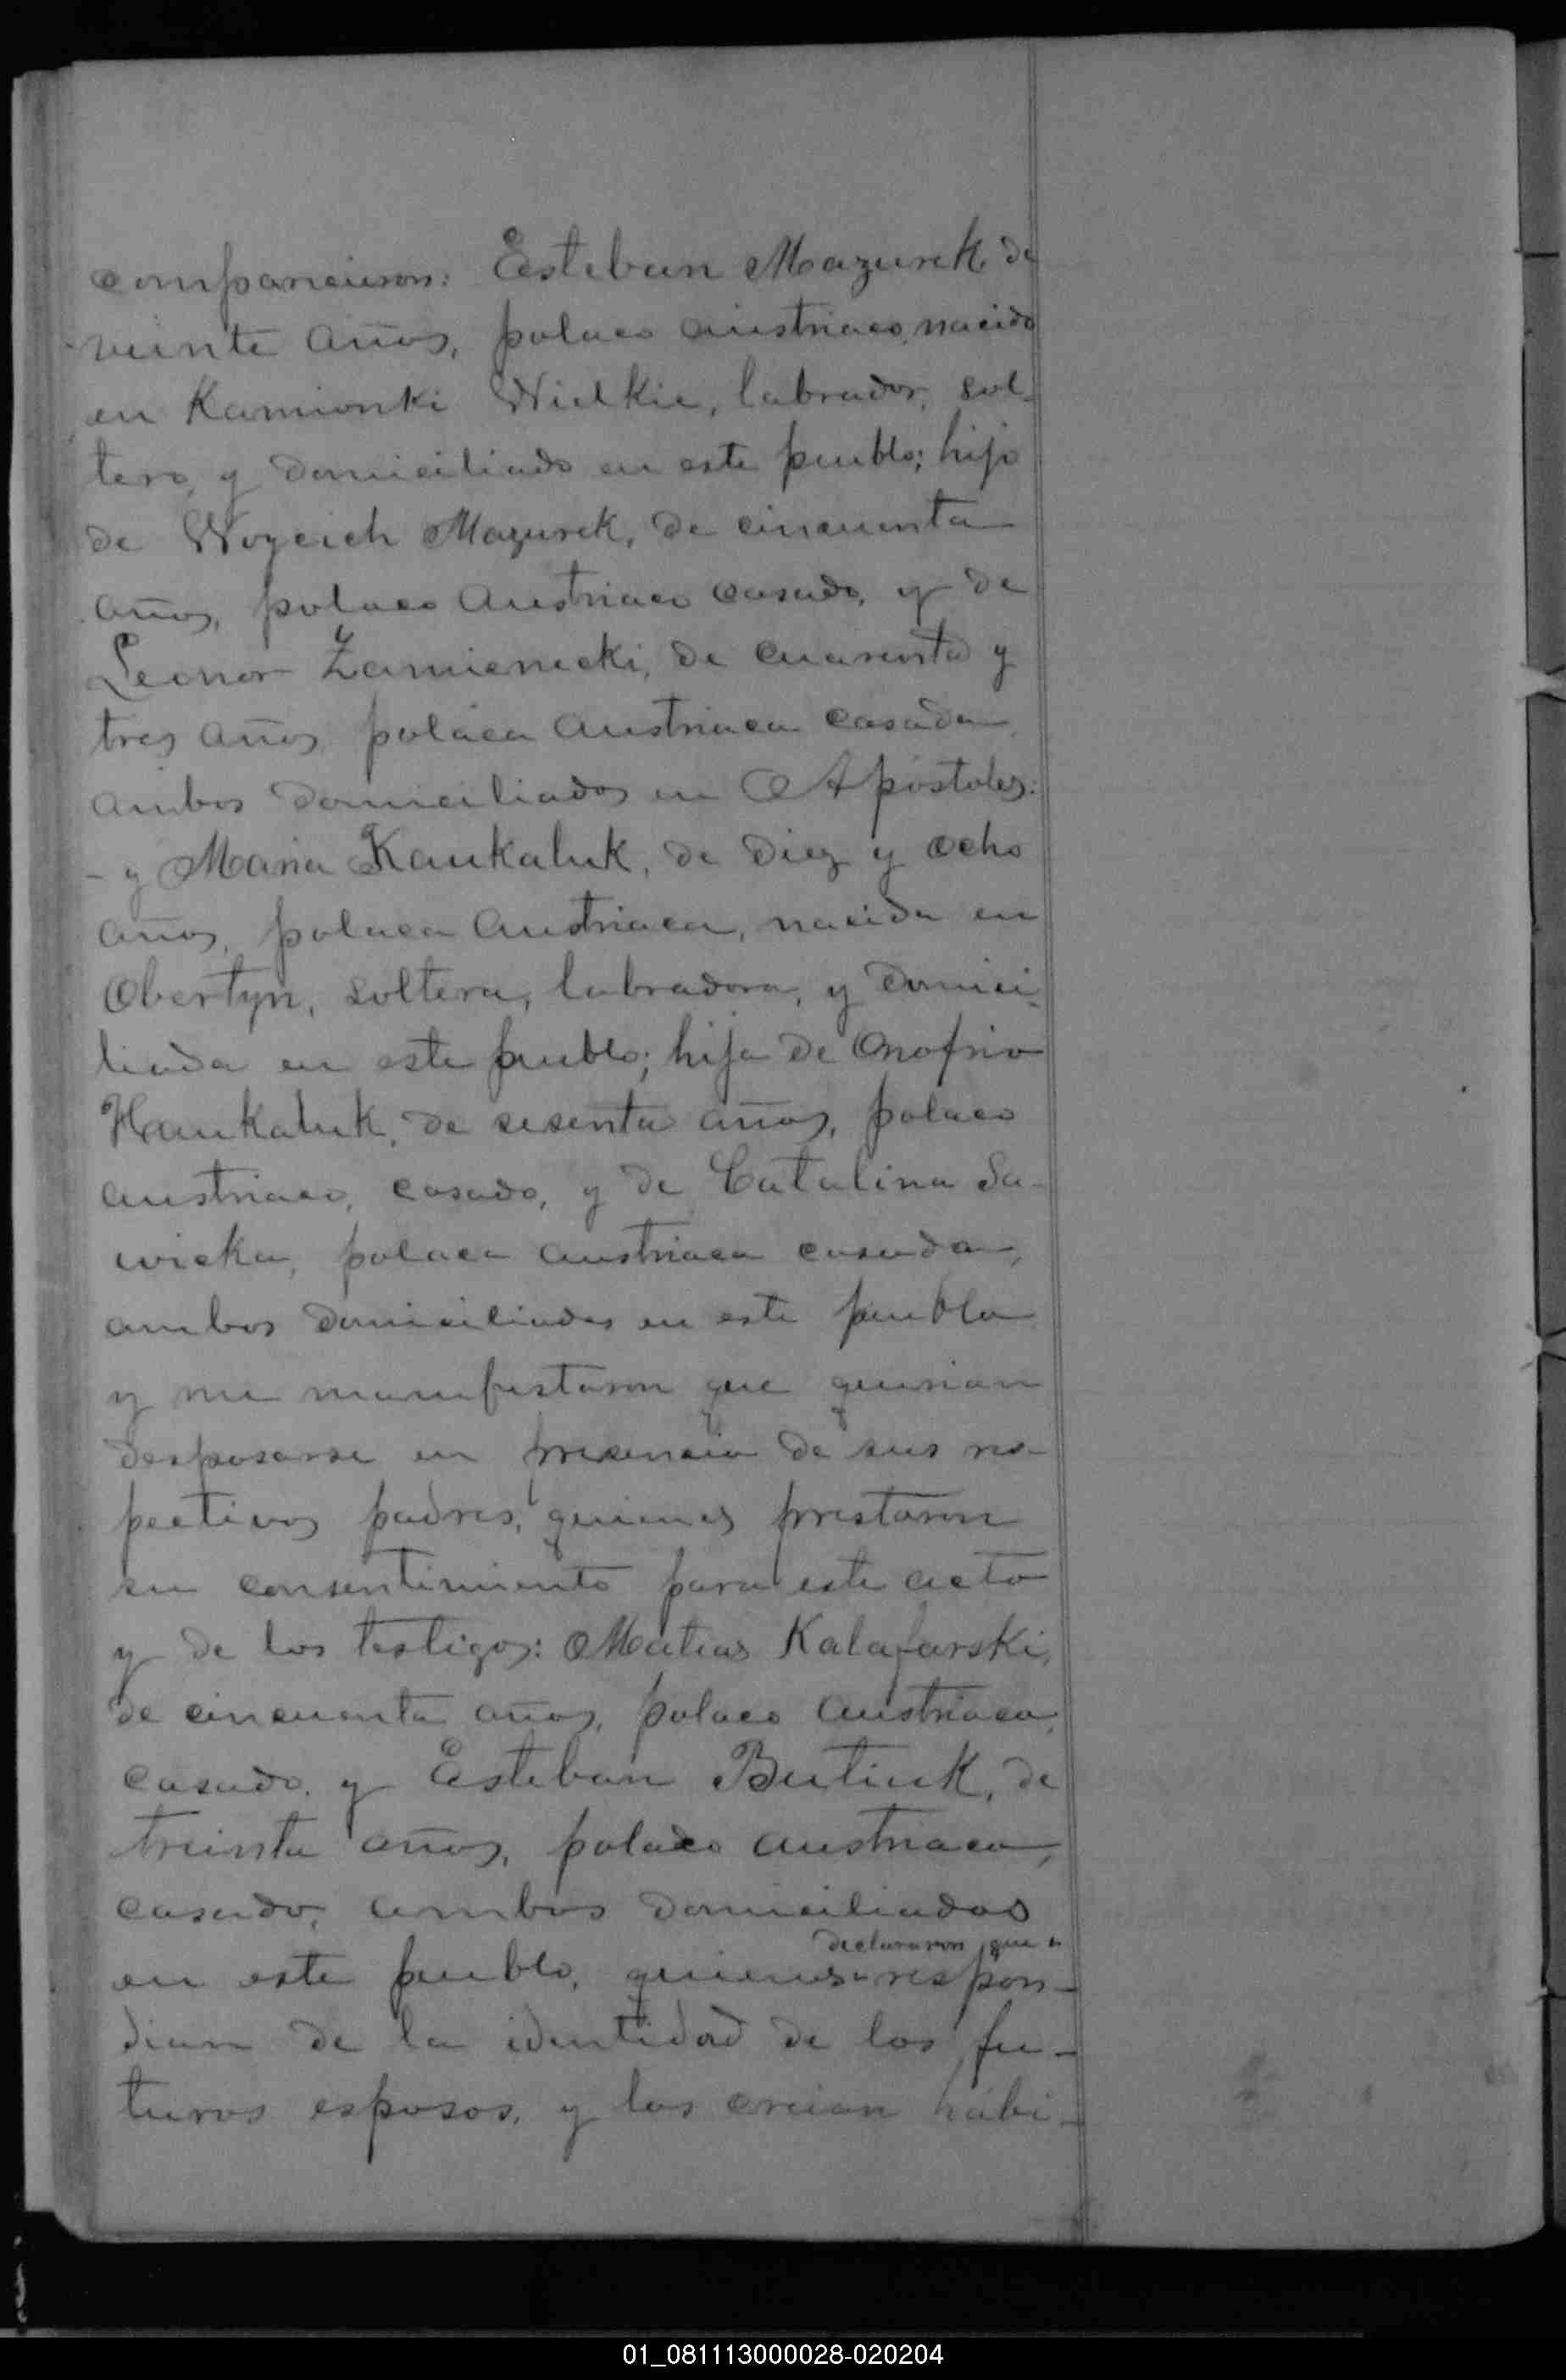 comparecieron: Esteban Mazurek de
veinte años, polaco austriaco, nacido
en Kamionki Wielkie, labrador, sol-
tero, y domiciliado en este pueblo; hijo
de Woyceich Mazurek, de cincuenta
años, polaco austriaco casado, y de
Leonor Zamienecki, de cuarenta y
tres años polaca austriaca casada,
ambos domiciliados en Apóstoles:
- y Maria Kaukaluk, de diez y ocho
años, polaca austriaca, nacida en
Obertyn, soltera, labradora, y domici-
liada en este pueblo; hija de Onofrio
Haukaluk, de sesenta años, polaco
austriaco, casado, y de Catalina Sa-
wicka, polaca austriaca casada,
ambos domiciliados en este pueblo
y me manifestaron que querian
desposarse en presencia de sus res-
pectivos padres, quienes prestaron
su consentimiento para este acto
y de los testigos: Matias Kalafarski,
de cincuenta años, polaco austriaco,
casado, y Esteban Butiuk, de
treinta años, polaco austriaco,
casado, ambos domiciliados
declararon que
en este pueblo, quienes respon-
dian de la identidad de los fu-
turos esposos, y los creian habi-
01_081113000028-020204